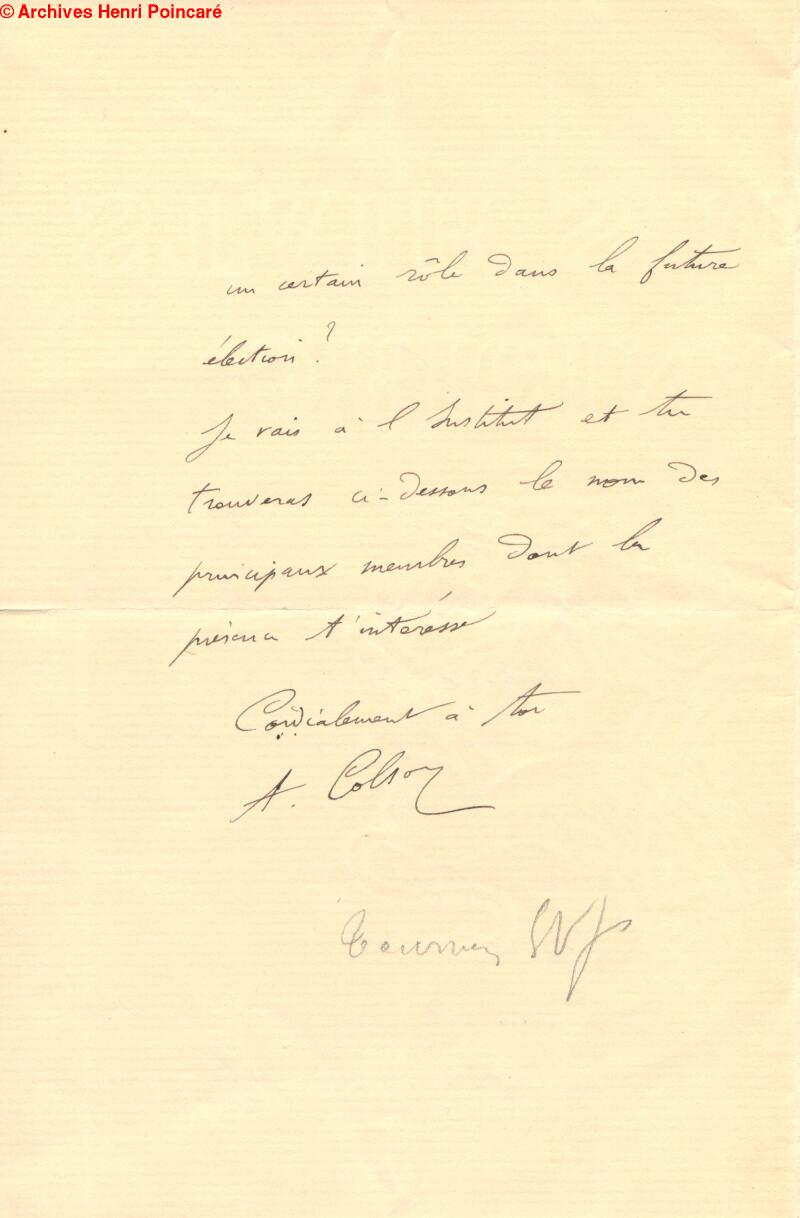 © Archives Henri Poincaré
un certain rôle dans la future
élection ?
Je vais à l'Institut et tu
trouveras ci-dessous le nom des
principaux membres dont la
présence t'intéresse
Cordialement à toi
A. Colson
Tournez SVP